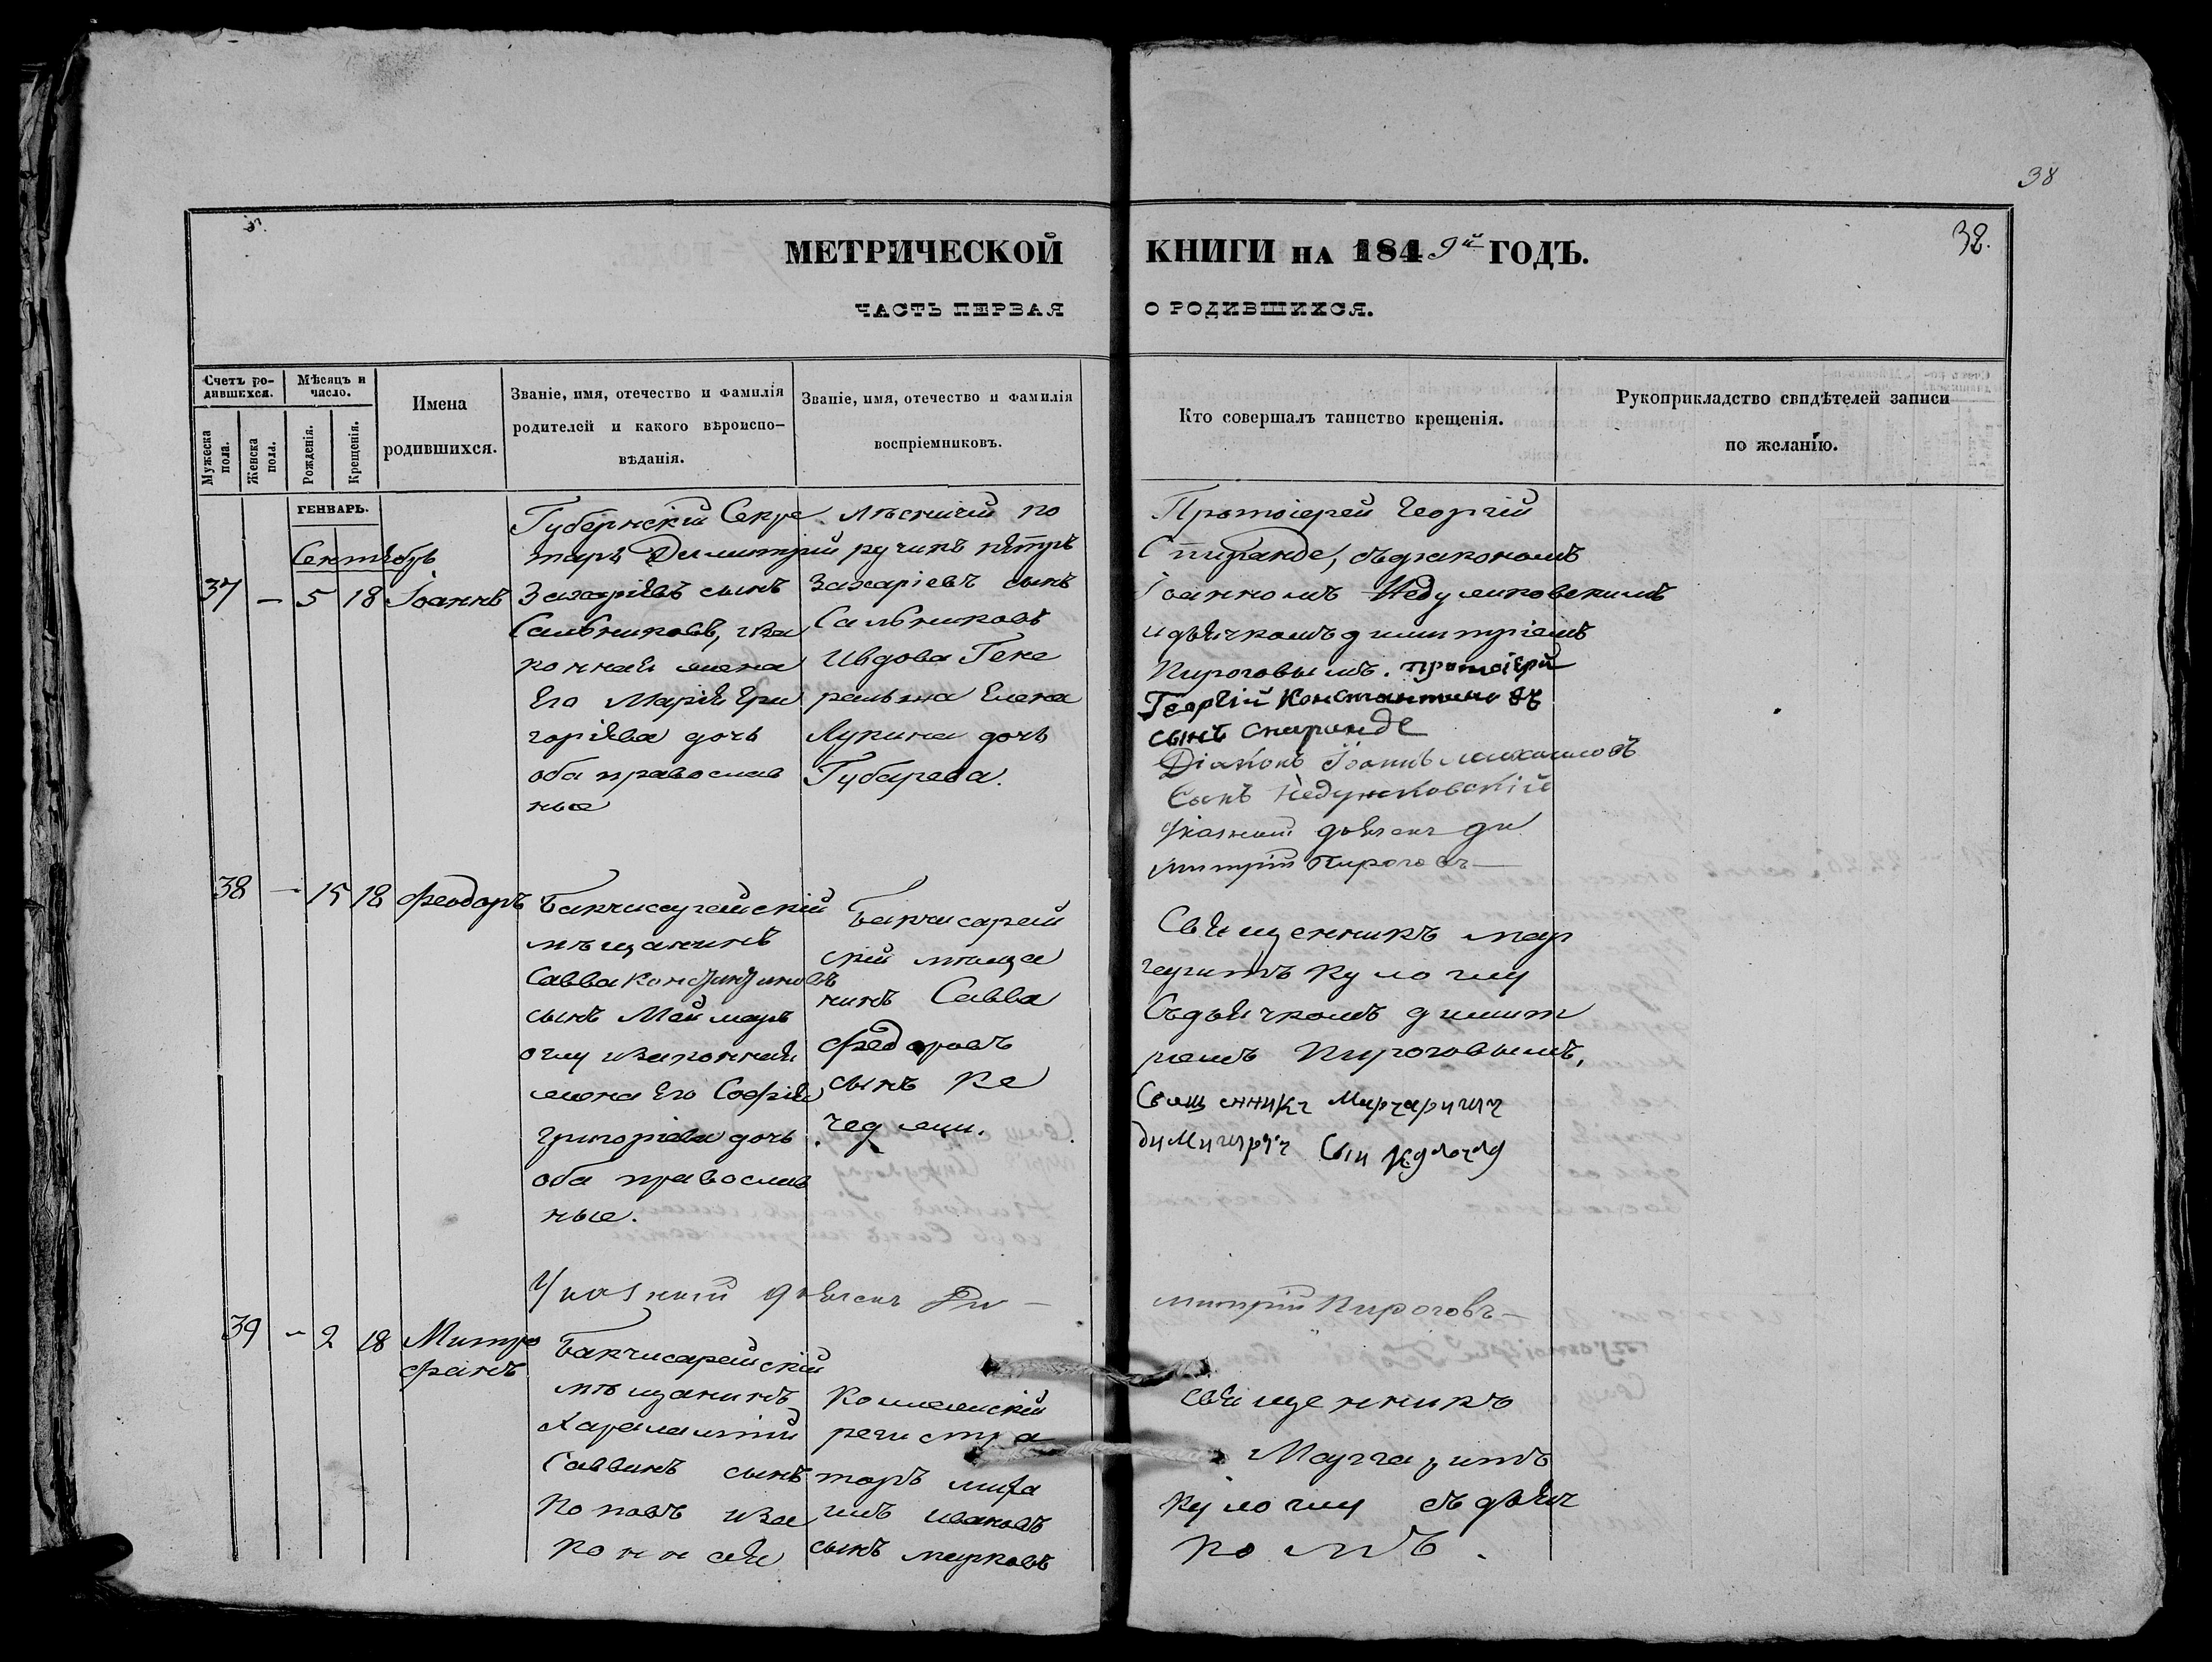 38
32.
МЕТРИЧЕСКОЙ КНИГИ НА 1849й ГОДЪ.
ЧАСТЬ ПЕРВАЯ О РОДИВШИХСЯ.
Счетъ ро-
дившихся.
Мужеска пола.
Женска пола.
Мѣсяцъ и
число.
Рожденія.
Крещенія.
Имена
родившихся.
Званіе, имя, отечество и фамилія
родителей и какого вѣроиспо-
вѣданія.
Званіе, имя, отечество и фамилія
воспріемниковъ.
Кто совершалъ таинство крещенія.
Рукоприкладство свидѣтелей записи
по желанію.
ГЕНВАРЬ.
Сентябрь
37 — 5 18 Іоаннъ
Губернскій Секре
тарь Димитрій
Захаріевъ сынъ
Сальниковъ, иза
конная жена
Его Марія Гри
горіева дочь
оба православ
ные
Лѣсничій по
ручикъ Пётръ
Захаріевъ сынъ
Сальниковъ
Ивдова Гене
ральша Елена
Лукина дочь
Губарева.
Протоіерей Георгій
Спиранде, съдіакономъ
Іоанномъ Недзелковскимъ
идьячкомъ димитріемъ
Пироговымъ. протоіерей
Георгій Константиновъ
сынъ Спиранде
Діаконъ Іоаннъ Михаиловъ
Сынъ
Указный дьячекъ Ди
митрій Пироговъ —
38 — 15 18 Феодоръ
Бакчисарайскій
мѣщанинъ
Савва Константиновъ
сынъ Маймаръ
оглу изаконная
жена Его Софія
Григоріева дочь
оба православ
ные.
Бакчисарай
скій мѣща
нинъ Савва
Федоровъ
сынъ Ке
чеджи.
Священникъ Мар
гаритъ Кулоглу
Съдьячкомъ димит
ріемъ Пироговымъ,
Священникъ Маргаритъ
димитріевъ Сын Кулоглу
Указный дьячекъ Ди —
митрій Пироговъ —
39 — 2 18 Митро
фанъ
Бакчисарайскій
мѣщанинъ
Харалампій
Саввинъ сынъ
Поповъ иза
конная
Коллежскій
регистра
торъ
Ивановъ
сынъ Марковъ
Священникъ
Маргаритъ
Кулоглу съдьяч
комъ.